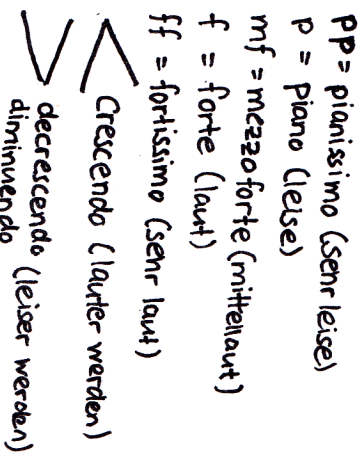 pp = pianissimo (sehr leise)
p = piano (leise)
mf = mezzoforte (mittellaut)
f = forte (laut)
ff = fortissimo (sehr laut)
Crescendo (lauter werden)
decrescendo (leiser werden)
diminuendo